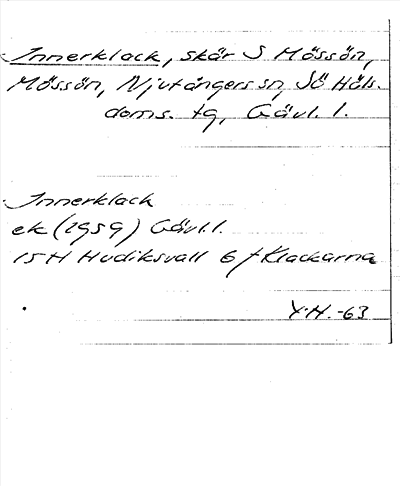 Innerklack, skär S Mössön,
Mössön, Njutångers sn, SÖ Häls.
doms. tg, Gävl. l.
Innerklack
ek (1959) Gävl.l.
15H Hudiksvall 6 f Klackarna
Y.H. -63